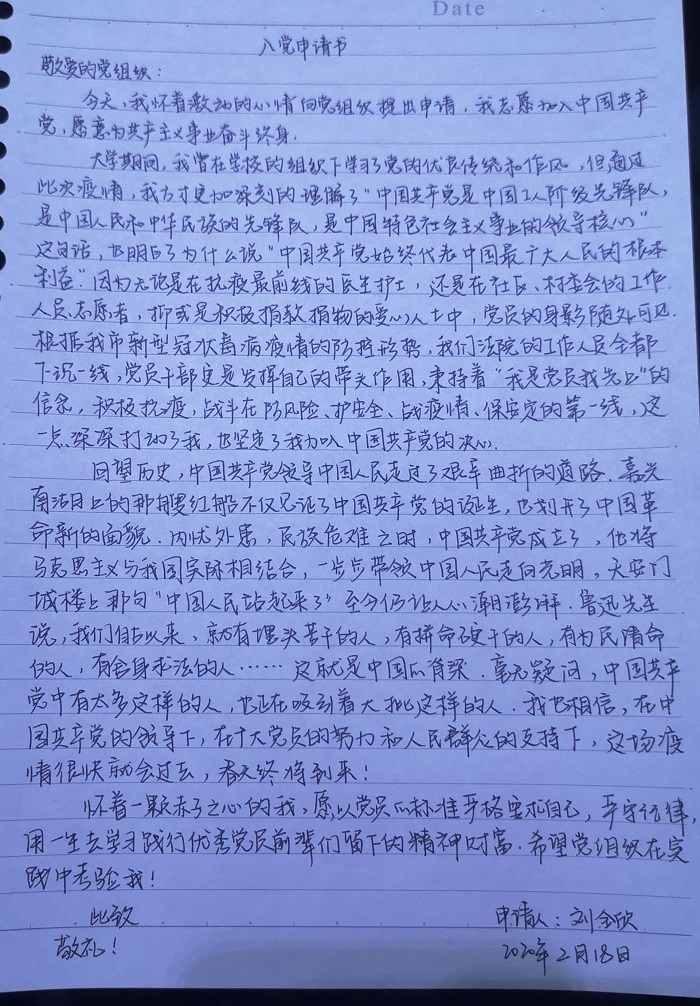 Date
入党申请书
敬爱的党组织：
今天，我怀着激动的心情向党组织提出申请，我志愿加入中国共产
党，愿意为共产主义事业奋斗终身.
大学期间，我曾在学校的组织下学习了党的优良传统和作风，但通过
此次疫情，我方才更加深刻的理解了"中国共产党是中国工人阶级先锋队，
是中国人民和中华民族的先锋队，是中国特色社会主义事业的领导核心"
这句话，也明白了为什么说"中国共产党始终代表中国最广大人民的根本
利益".因为无论是在抗疫最前线的医生护士，还是在社区、村委会的工作
人员、志愿者，抑或是积极捐款捐物的爱心人士中，党员的身影随处可见.
根据我市新型冠状毒病疫情的防控形势，我们法院的工作人员全都
下沉一线，党员干部更是发挥自己的带头作用，秉持着"我是党员我先上"的
信念，积极抗疫，战斗在防风险、护安全、战疫情、保安定的第一线，这
一点深深打动了我，也坚定了我加入中国共产党的决心.
回望历史，中国共产党领导中国人民走过了艰辛曲折的道路.嘉兴
南湖上的那艘红船不仅见证了中国共产党的诞生，也划开了中国革
命新的面貌.内忧外患，民族危难之时，中国共产党成立了，他将
马克思主义与我国实际相结合，一步步带领中国人民走向光明，天安门
城楼上那句"中国人民站起来了"至今仍让人心潮澎湃.鲁迅先生
说，我们自古以来，就有埋头苦干的人，有拼命硬干的人，有为民请命
的人，有舍身求法的人……这就是中国的脊梁.毫无疑问，中国共产
党中有太多这样的人，也正在吸引着大批这样的人.我也相信，在中
国共产党的领导下，在广大党员的努力和人民群众的支持下，这场疫
情很快就会过去，春天终将到来！
怀着一颗赤子之心的我，愿以党员的标准严格要求自己，严守纪律，
用一生去学习践行优秀党员前辈们留下的精神财富.希望党组织在实
践中考验我！
此致
申请人：刘金欣
敬礼！
2020年2月18日